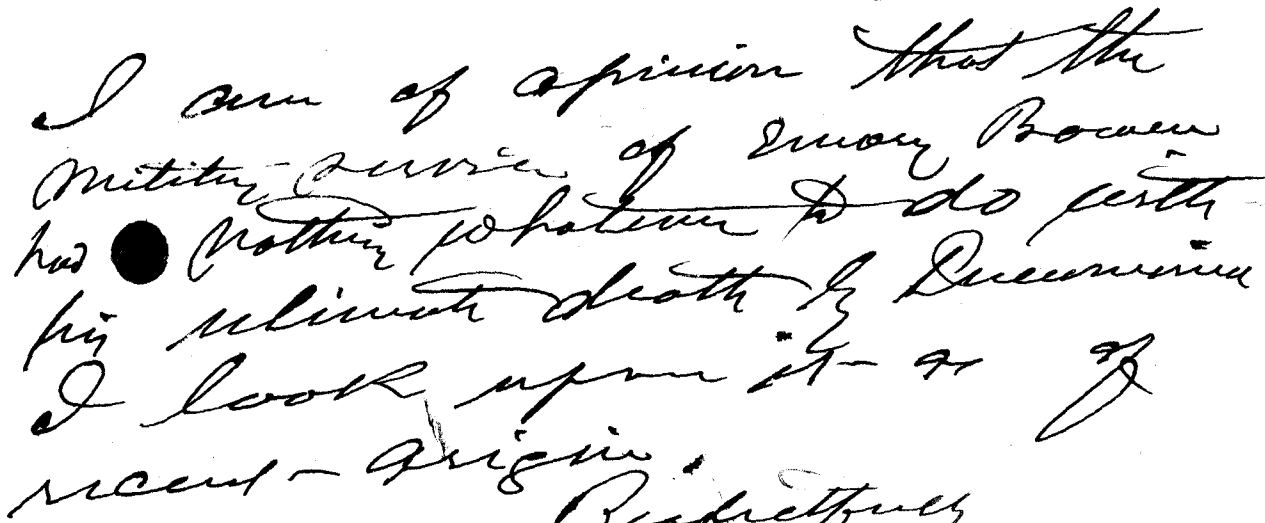 I am of opinion that the
Military service of Emory Bowen
had nothing whatever to do with
his ultimate death by Pneumonia
I look upon it as of
recent origin.
Respectfully